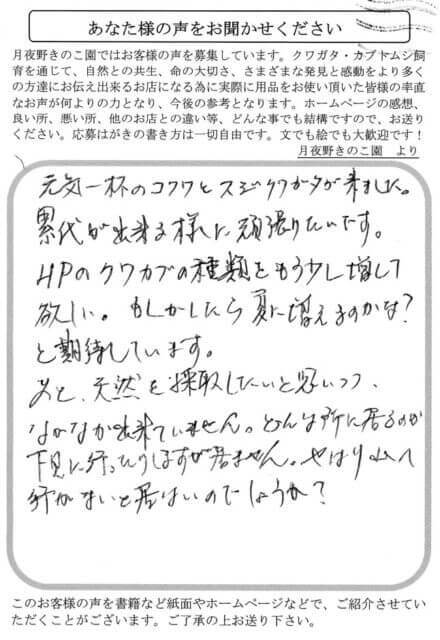 あなた様の声をお聞かせください
月夜野きのこ園ではお客様の声を募集しています。クワガタ・カブトムシ飼
育を通じて、自然との共生、命の大切さ、さまざまな発見と感動をより多く
の方達にお伝え出来るお店になる為に実際に用品をお使い頂いた皆様の率直
なお声が何よりの力となり、今後の参考となります。ホームページの感想、
良い所、悪い所、他のお店との違い等、どんな事でも結構ですので、お送り
ください。応募はがきの書き方は一切自由です。文でも絵でも大歓迎です！
月夜野きのこ園　より
元気一杯のコクワとスジクワガタが来ました。
累代が出来る様に頑張りたいです。
HPのクワカブの種類をもう少し増して
欲しい。もしかしたら夏に増えるのかな?
と期待しています。
あと、天然を採取したいと思いつつ、
なかなか出来ていません。どんな所に居るのか
下見に行ったりしますが居ません。やはり山へ
行かないと居ないのでしょうか?
このお客様の声を書籍など紙面やホームページなどで、ご紹介させてい
ただくことがございます。ご了承の上お送り下さい。